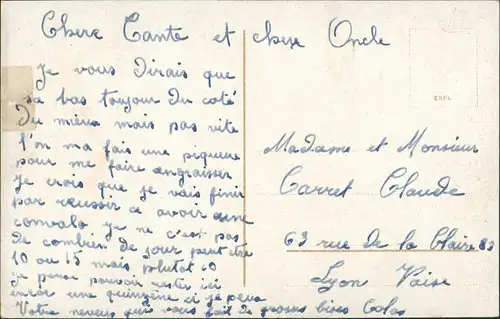 Chere Tante et chere Oncle
Je vous dirais que
sa bas toujour du coté
du mieux mais pas vite
l'on ma fais une piqueue
pour me faire engraisser
je crois que je vais finir
par reussir a avoir une
convalo je ne c'est pas
de combien de jour peut etre
10 ou 15 mais plutot 10
je pense pouvoir rester ici
encor une quinzene si je peus
Votre neveus qui vous fait de grosses bises
Madame et Monsieur
Carret Claude
63 rue de la Claire
Lyon Vaise